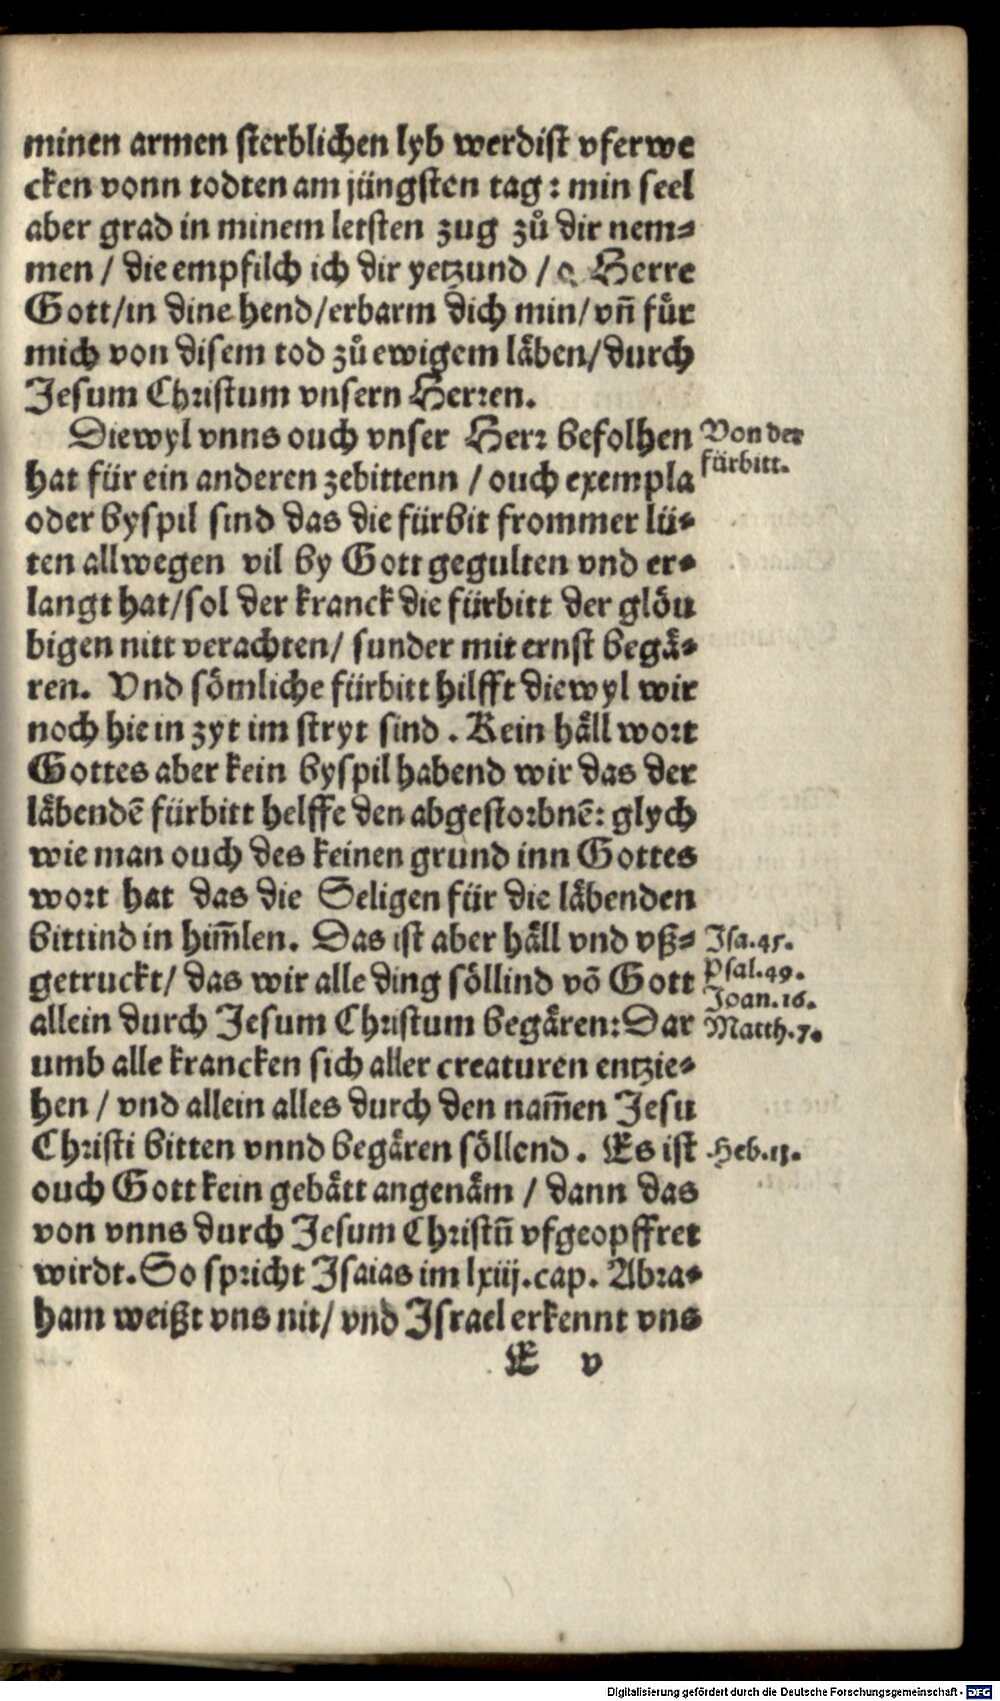 minen armen sterblichen lyb werdist vferwe
cken vonn todten am jüngsten tag: min seel
aber grad in minem letsten zug zů dir nem⸗
men / die empfilch ich dir yetzund / o Herre
Gott/in dine hend/erbarm dich min/ vñ fuͤr
mich von disem tod zů ewigem laͤben/durch
Jesum Christum vnsern Herren.
Diewyl vnns ouch vnser Herr befolhen
Von der
fürbitt.
hat für ein anderen zebittenn / ouch exempla
oder byspil sind das die fürbit frommer lü⸗
ten allwegen vil by Gott gegulten vnd er⸗
langt hat/sol der kranck die fürbitt der gloͤu
bigen nitt verachten/ sunder mit ernst begaͤ⸗
ren. Vnd soͤmliche fürbitt hilfft diewyl wir
noch hie in zyt im stryt sind. Kein haͤll wort
Gottes aber kein byspil habend wir das der
laͤbendẽ fürbitt helffe den abgestorbnẽ: glych
wie man ouch des keinen grund inn Gottes
wort hat das die Seligen für die laͤbenden
bittind in him̃len. Das ist aber haͤll vnd vß⸗
getruckt/ das wir alle ding soͤllind võ Gott
allein durch Jesum Christum begaͤren: Dar
Isa.45.
Psal.49.
Joan.16.
Matth.7.
umb alle krancken sich aller creaturen entzie⸗
hen / vnd allein alles durch den nam̃en Jesu
Christi bitten vnnd begaͤren soͤllend. Es ist
Heb.13.
ouch Gott kein gebaͤtt angenaͤm / dann das
von vnns durch Jesum Christũ vfgeopffret
wirdt. So spricht Isaias im lxiij.cap. Abra⸗
ham weißt vns nit/ vnd Israel erkennt vns
E v
Digitalisierung gefördert durch die Deutsche Forschungsgemeinschaft - DFG